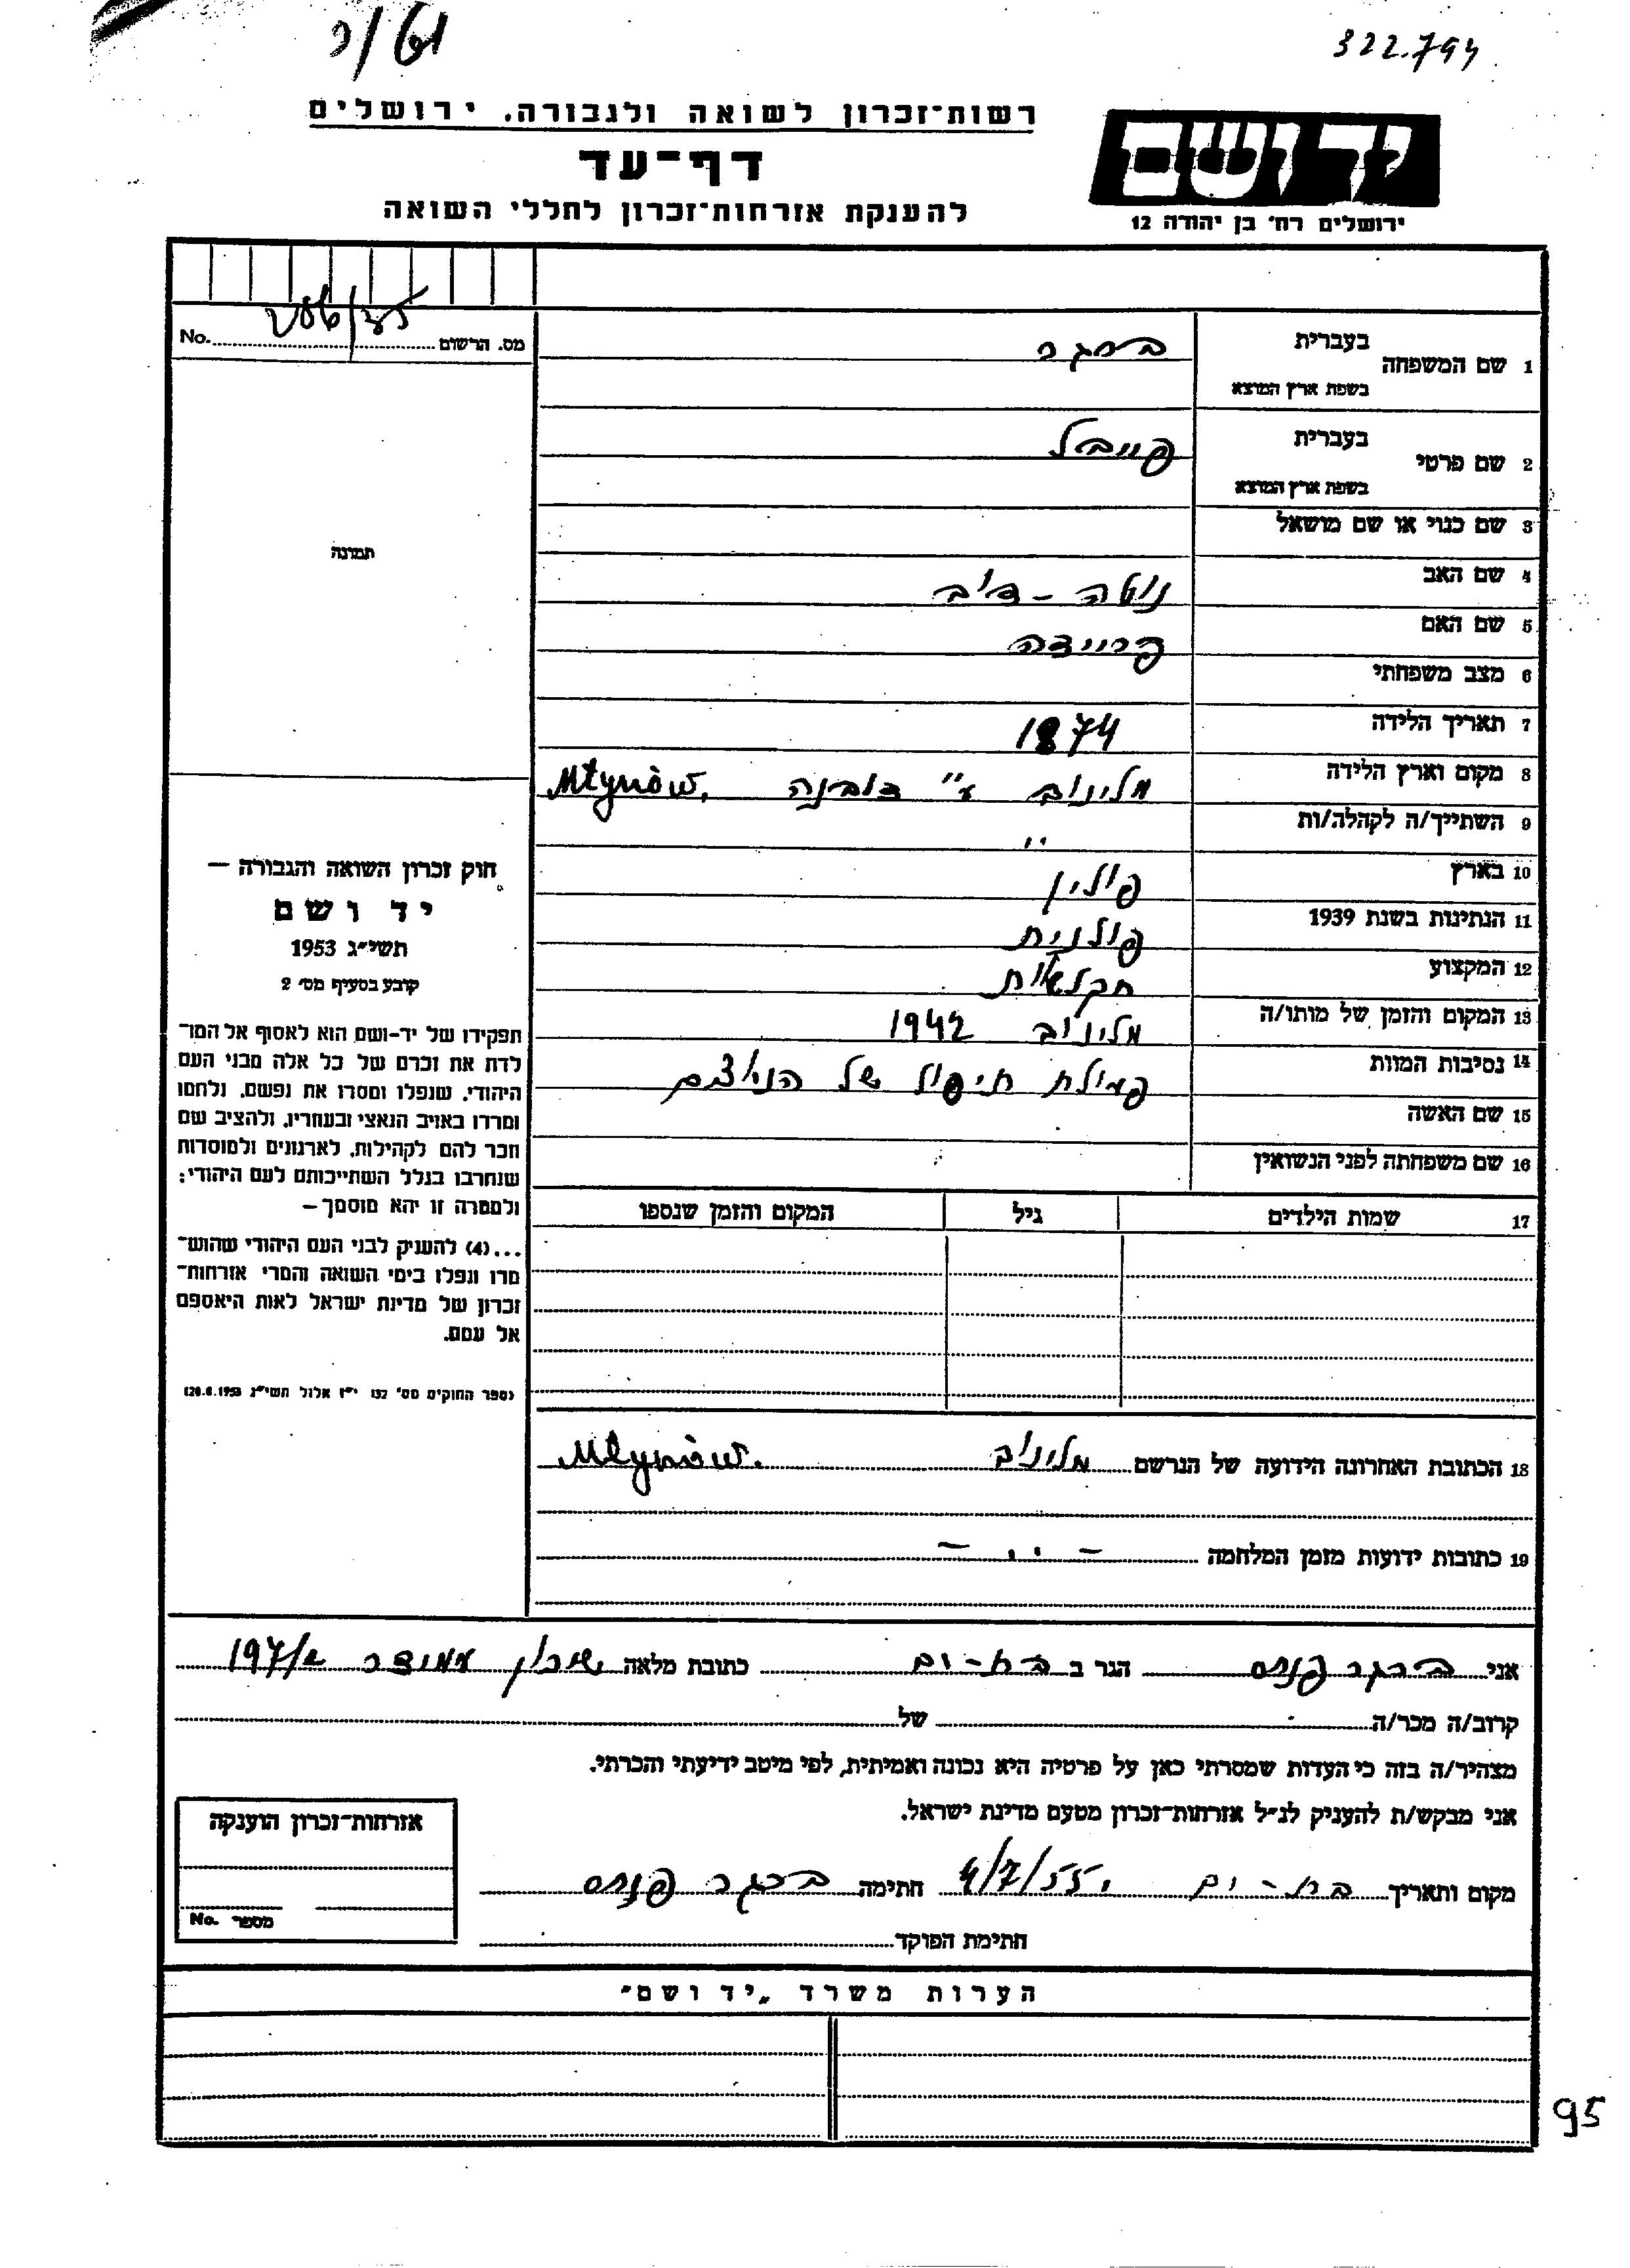 322.794
רשות־זכרון לשואה ולגבורה, ירושלים
דף־עד
להענקת אזרחות־זכרון לחללי השואה
יד ושם
ירושלים רח׳ בן יהודה 12
מס. הרשום No.
1 שם המשפחה בעברית ברגר
בשפת ארץ המוצא
2 שם פרטי בעברית פייבל
בשפת ארץ המוצא
3 שם כנוי או שם מושאל
תמונה
4 שם האב נוטה -
5 שם האם פריידה
6 מצב משפחתי
7 תאריך הלידה 1874
8 מקום וארץ הלידה מלינוב ע״י דובנה Młynów.
9 השתייך/ה לקהלה/ות ״
10 בארץ פולין
11 הנתינות בשנת 1939 פולנית
12 המקצוע חקלאות
13 המקום והזמן של מותו/ה מלינוב 1942
14 נסיבות המוות פעולת חיסול של הנאצים
15 שם האשה
16 שם משפחתה לפני הנשואין
17 שמות הילדים גיל המקום והזמן שנספו
חוק זכרון השואה והגבורה —
יד ושם
תשי״ג 1953
קובע בסעיף מס׳ 2
תפקידו של יד-ושם הוא לאסוף אל המו־
לדת את זכרם של כל אלה מבני העם
היהודי, שנפלו ומסרו את נפשם, נלחמו
ומרדו באויב הנאצי ובעוזריו, ולהציב שם
וזכר להם לקהילות, לארגונים ולמוסדות
שנחרבו בגלל השתייכותם לעם היהודי;
ולמטרה זו יהא מוסמך —
...(4) להעניק לבני העם היהודי שהוש־
מדו ונפלו בימי השואה והמרי אזרחות־
זכרון של מדינת ישראל לאות היאספם
אל עמם.
(ספר החוקים מס׳ 132 י״ז אלול תשי״ג 28.8.1953)
18 הכתובת האחרונה הידועה של הנרשם מלינוב Młynów.
19 כתובות ידועות מזמן המלחמה - ״ -
אני ברגר פנחס הגר ב בת-ים כתובת מלאה שיכון עמידר 197/
קרוב/ה מכר/ה של
מצהיר/ה בזה כי העדות שמסרתי כאן על פרטיה היא נכונה ואמיתית, לפי מיטב ידיעתי והכרתי.
אני מבקש/ת להעניק לנ״ל אזרחות-זכרון מטעם מדינת ישראל.
מקום ותאריך בת-ים, 4/7/55 חתימה ברגר פנחס
חתימת הפוקד
אזרחות־זכרון הוענקה
מספר No.
הערות משרד „יד ושם״
95